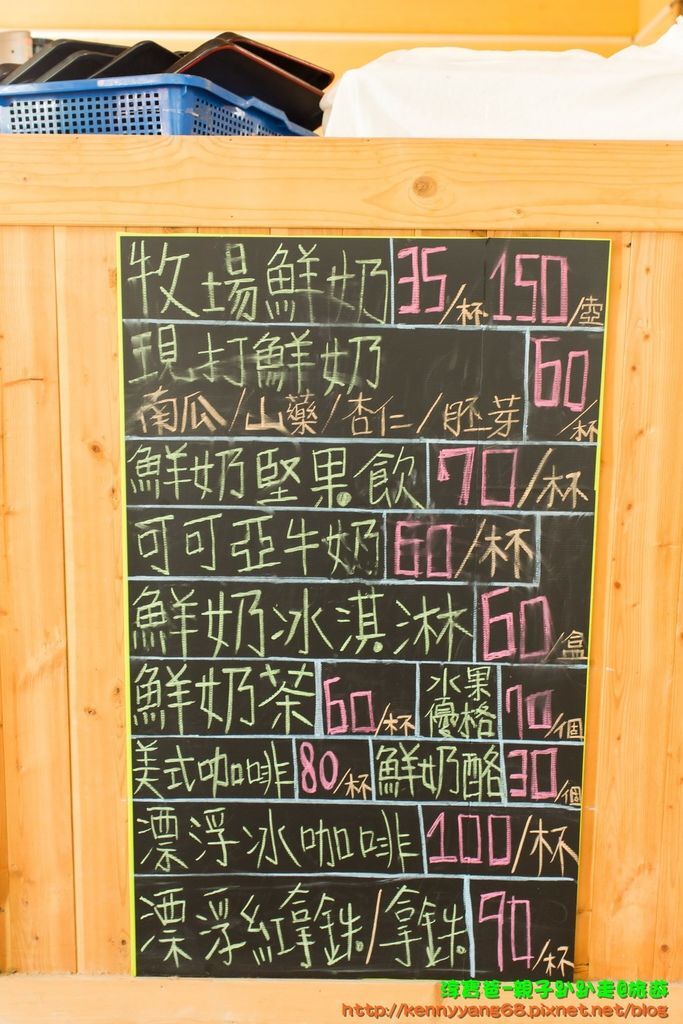 牧場鮮奶 35/杯 150/壺
現打鮮奶 60/杯
南瓜/山藥/杏仁/胚芽
鮮奶堅果飲 70/杯
可可亞牛奶 60/杯
鮮奶冰淇淋 60/盒
鮮奶茶 60/杯 水果優格 70/個
美式咖啡 80/杯 鮮奶酪 30/個
漂浮冰咖啡 100/杯
漂浮紅拿鉄/拿鉄 90/杯
淳宮爸-親子趴趴走@旅遊
http://kennyyang68.pixnet.net/blog